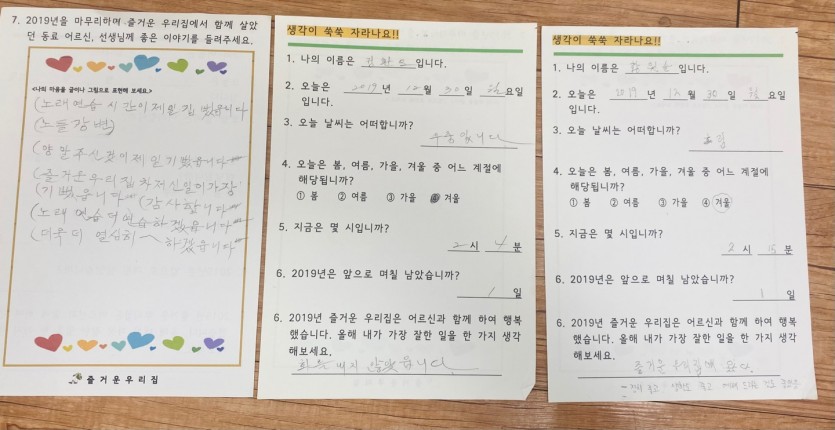 7. 2019년을 마무리하며 즐거운 우리집에서 함께 살았
던 동료 어르신, 선생님께 좋은 이야기를 들려주세요.
<나의 마음을 글이나 그림으로 표현해 보세요.>
(노래연습 시간이 제일
(노들강변)
(양말주신것이 제일 기뻤읍니다
(즐거운우리집 차저 신일이가장
(기뻤읍니다 (감사합니다
(노래 연습 더 연습하겠읍니다
(더욱 더 열심히 하겠읍니다
즐거운우리집
생각이 쑥쑥 자라나요!!
1. 나의 이름은 입니다.
2. 오늘은 2019 년 12 월 30 일 월 요일
입니다.
3. 오늘 날씨는 어떠합니까?
4. 오늘은 봄, 여름, 가을, 겨울 중 어느 계절에
해당됩니까?
① 봄 ② 여름 ③ 가을 ④ 겨울
5. 지금은 몇 시입니까?
2 시 4 분
6. 2019년은 앞으로 며칠 남았습니까?
1 일
6. 2019년 즐거운 우리집은 어르신과 함께 하여 행복
했습니다. 올해 내가 가장 잘한 일을 한 가지 생각
해보세요.
화를 내지 않았읍니다
생각이 쑥쑥 자라나요!!
1. 나의 이름은 입니다.
2. 오늘은 2019 년 12 월 30 일 월 요일
입니다.
3. 오늘 날씨는 어떠합니까?
4. 오늘은 봄, 여름, 가을, 겨울 중 어느 계절에
해당됩니까?
① 봄 ② 여름 ③ 가을 ④ 겨울
5. 지금은 몇 시입니까?
2 시 분
6. 2019년은 앞으로 며칠 남았습니까?
1 일
6. 2019년 즐거운 우리집은 어르신과 함께 하여 행복
했습니다. 올해 내가 가장 잘한 일을 한 가지 생각
해보세요.
즐거운 우리집에 요다.